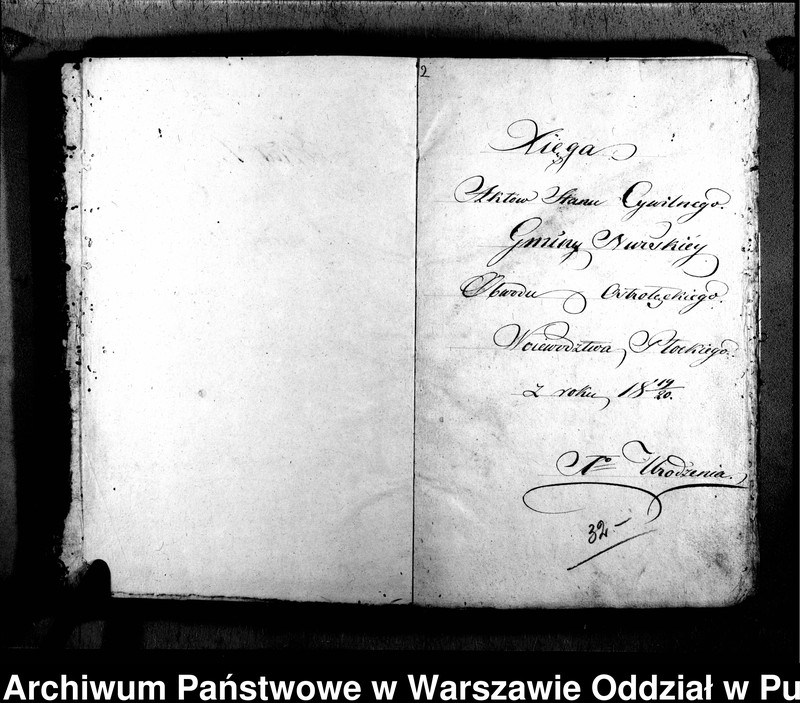 2
Xięga
Aktów Stanu Cywilnego.
Gminy Nurskiéy
Obwodu Ostrołęckiego.
Województwa Płockiego.
z roku 18 19/20.
1º Urodzenia.
32
Archiwum Państwowe w Warszawie Oddział w Pu